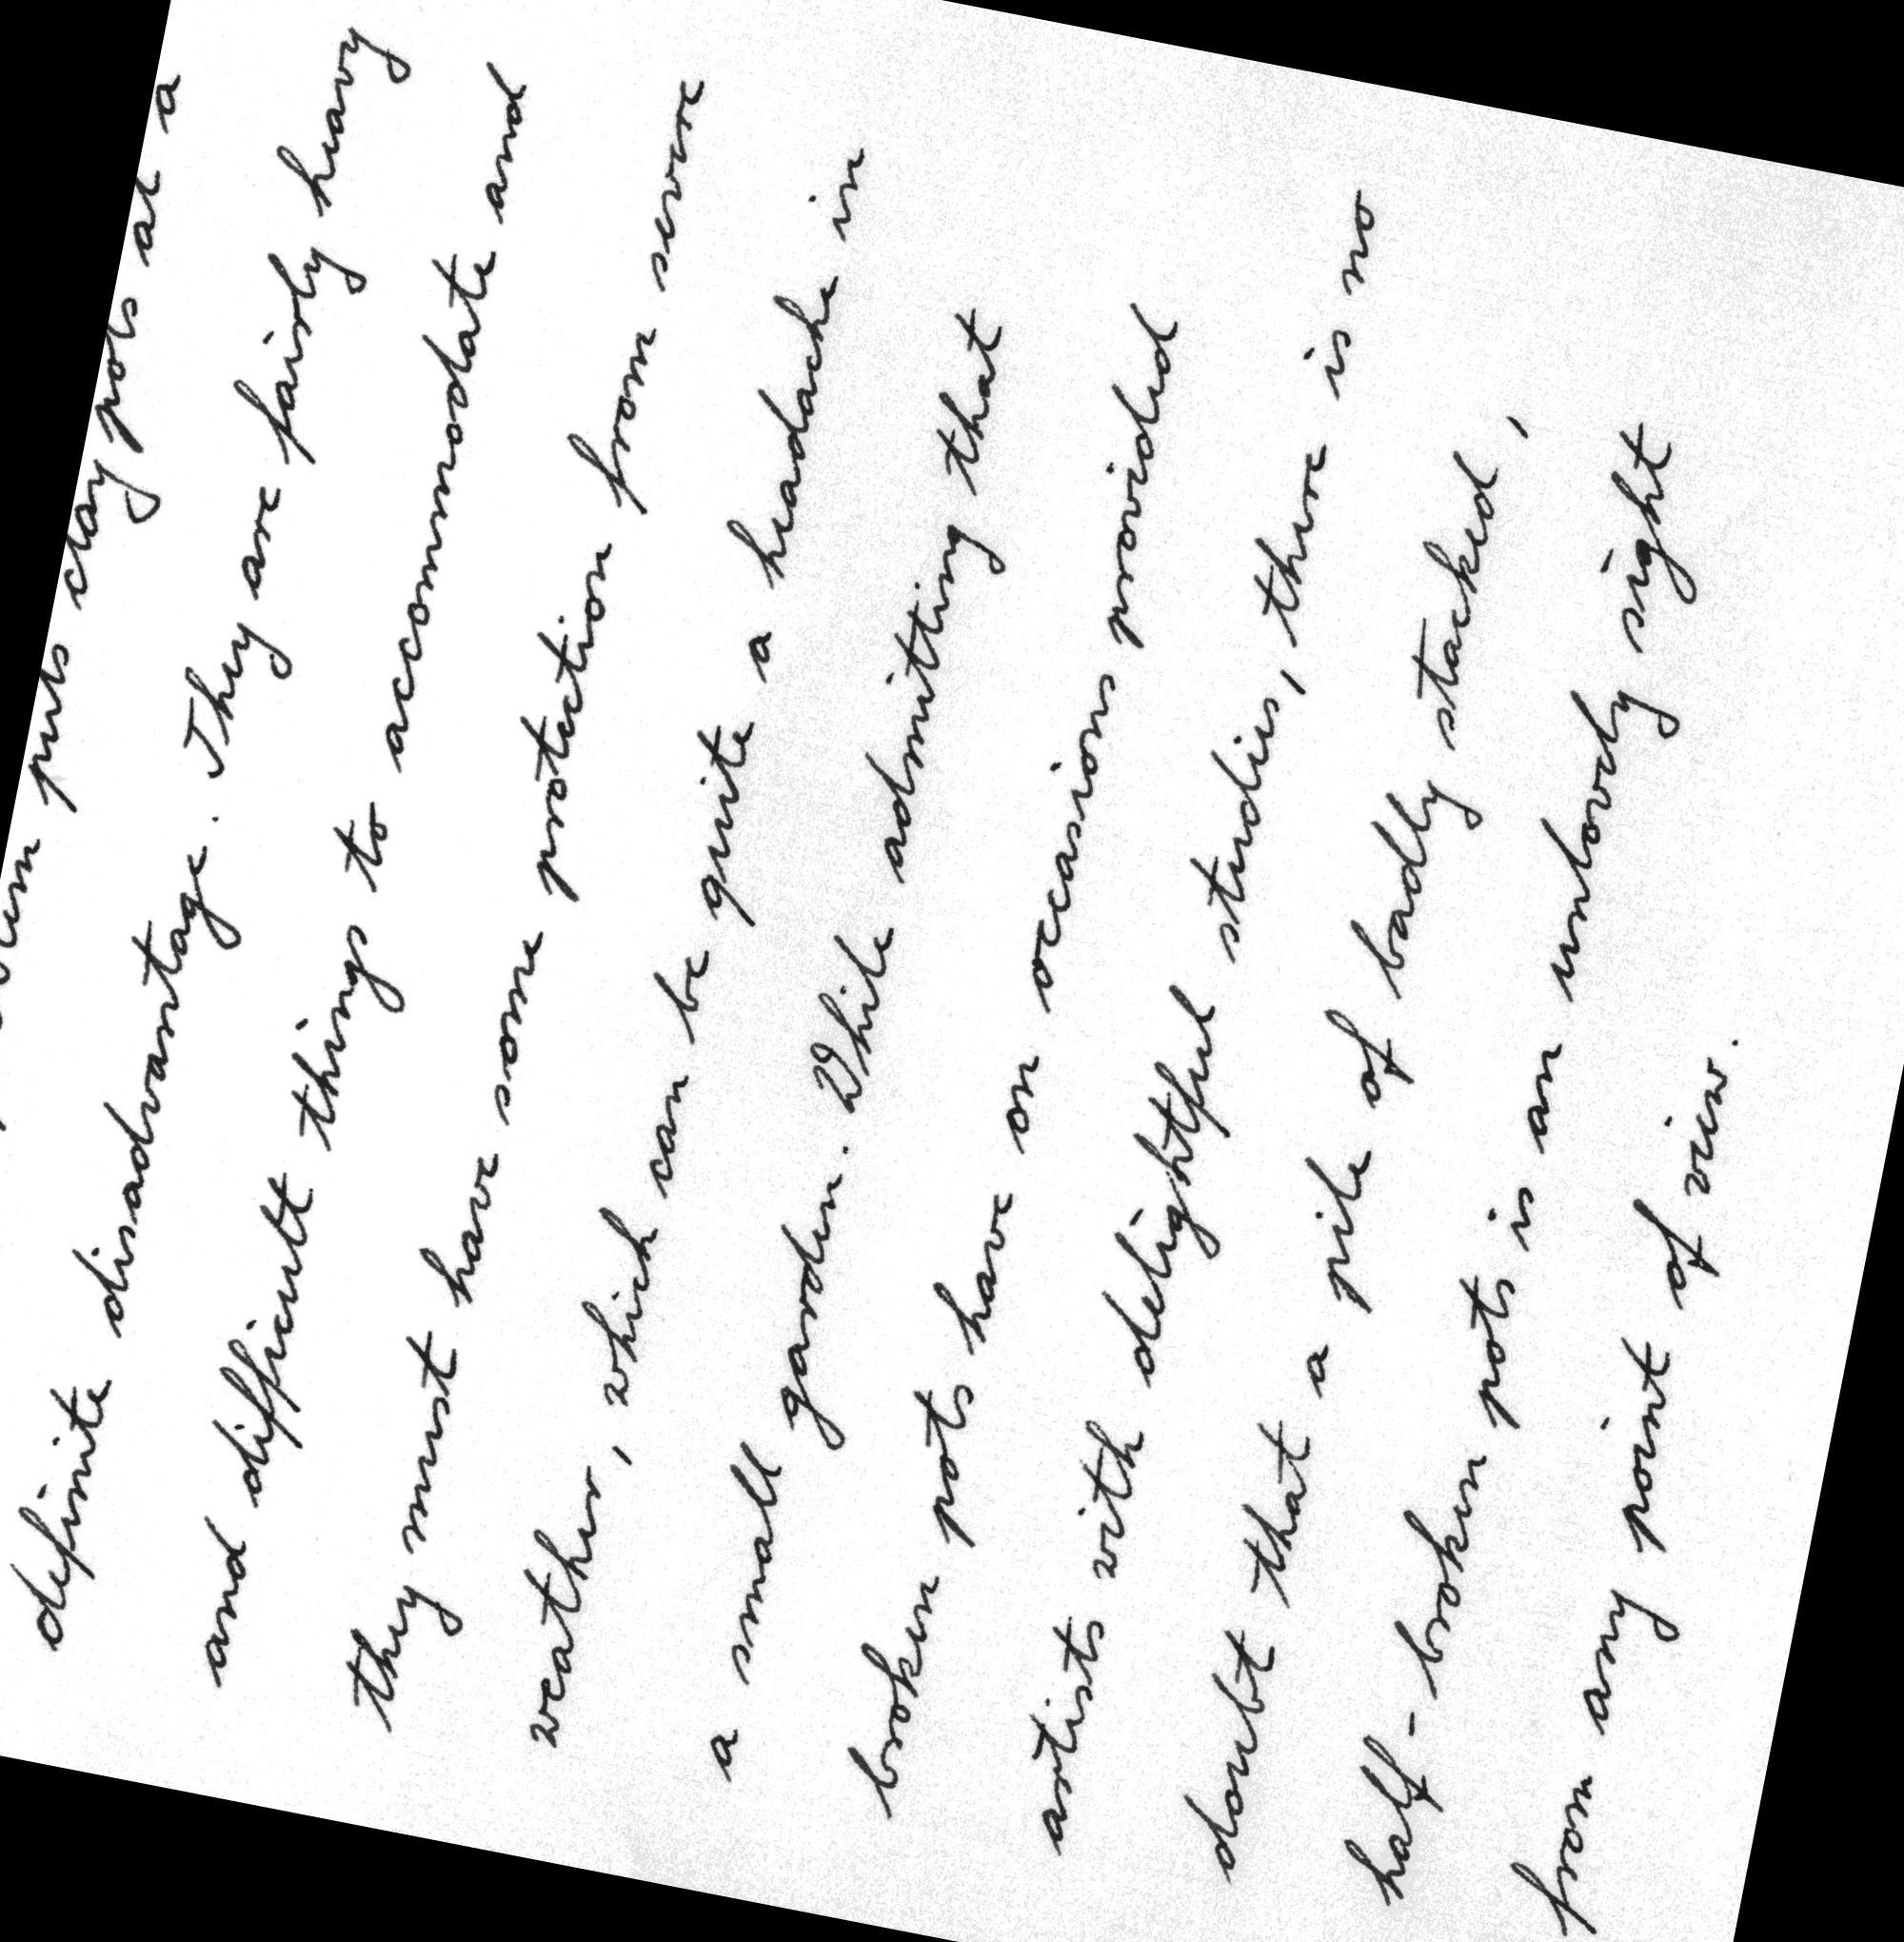 puts clay pots at a
definite disadvantage. They are fairly heavy
and difficult things to accommodate and
they must have some protection from severe
weather, which can be quite a headache in
a small garden. While admitting that
broken pots have on occasions provided
artists with delightful studies, there is no
doubt that a pile of badly stacked,
half-broken pots is an unlovely sight
from any point of view.